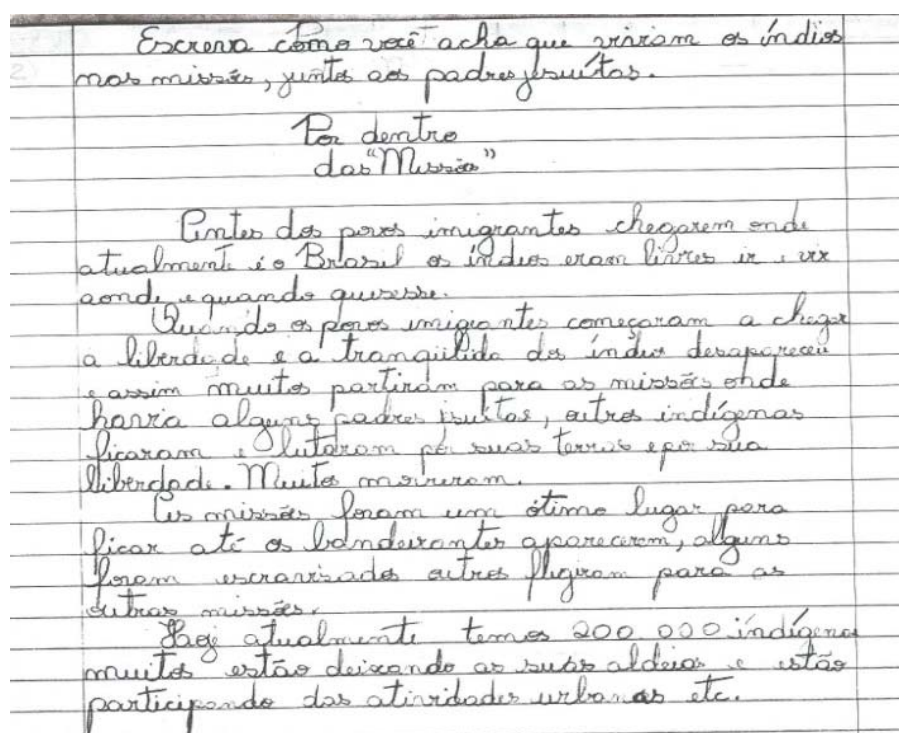 Escreva como você acha que viviam os índios
nas missões, juntos aos padres jesuítas.
Por dentro
das "Missões"
Antes dos povos imigrantes chegarem onde
atualmente é o Brasil os índios eram livres ir e vir
aonde e quando quisesse.
Quando os povos imigrantes começaram a chegar
a liberdade e a tranqüilida dos índios desapareceu
e assim muitos partiram para as missões onde
havia alguns padres jsuítas, outros indígenas
ficaram e lutaram por suas terras e por sua
liberdade. Muitos morreram.
As missões foram um ótimo lugar para
ficar até os bandeirantes aparecerem, alguns
foram escravisados outros fligiram para as
outras missões.
Hoje atualmente temos 200 000 indígenas
muitos estão deixando as suas aldeias e estão
participando das atividades urbanas etc.